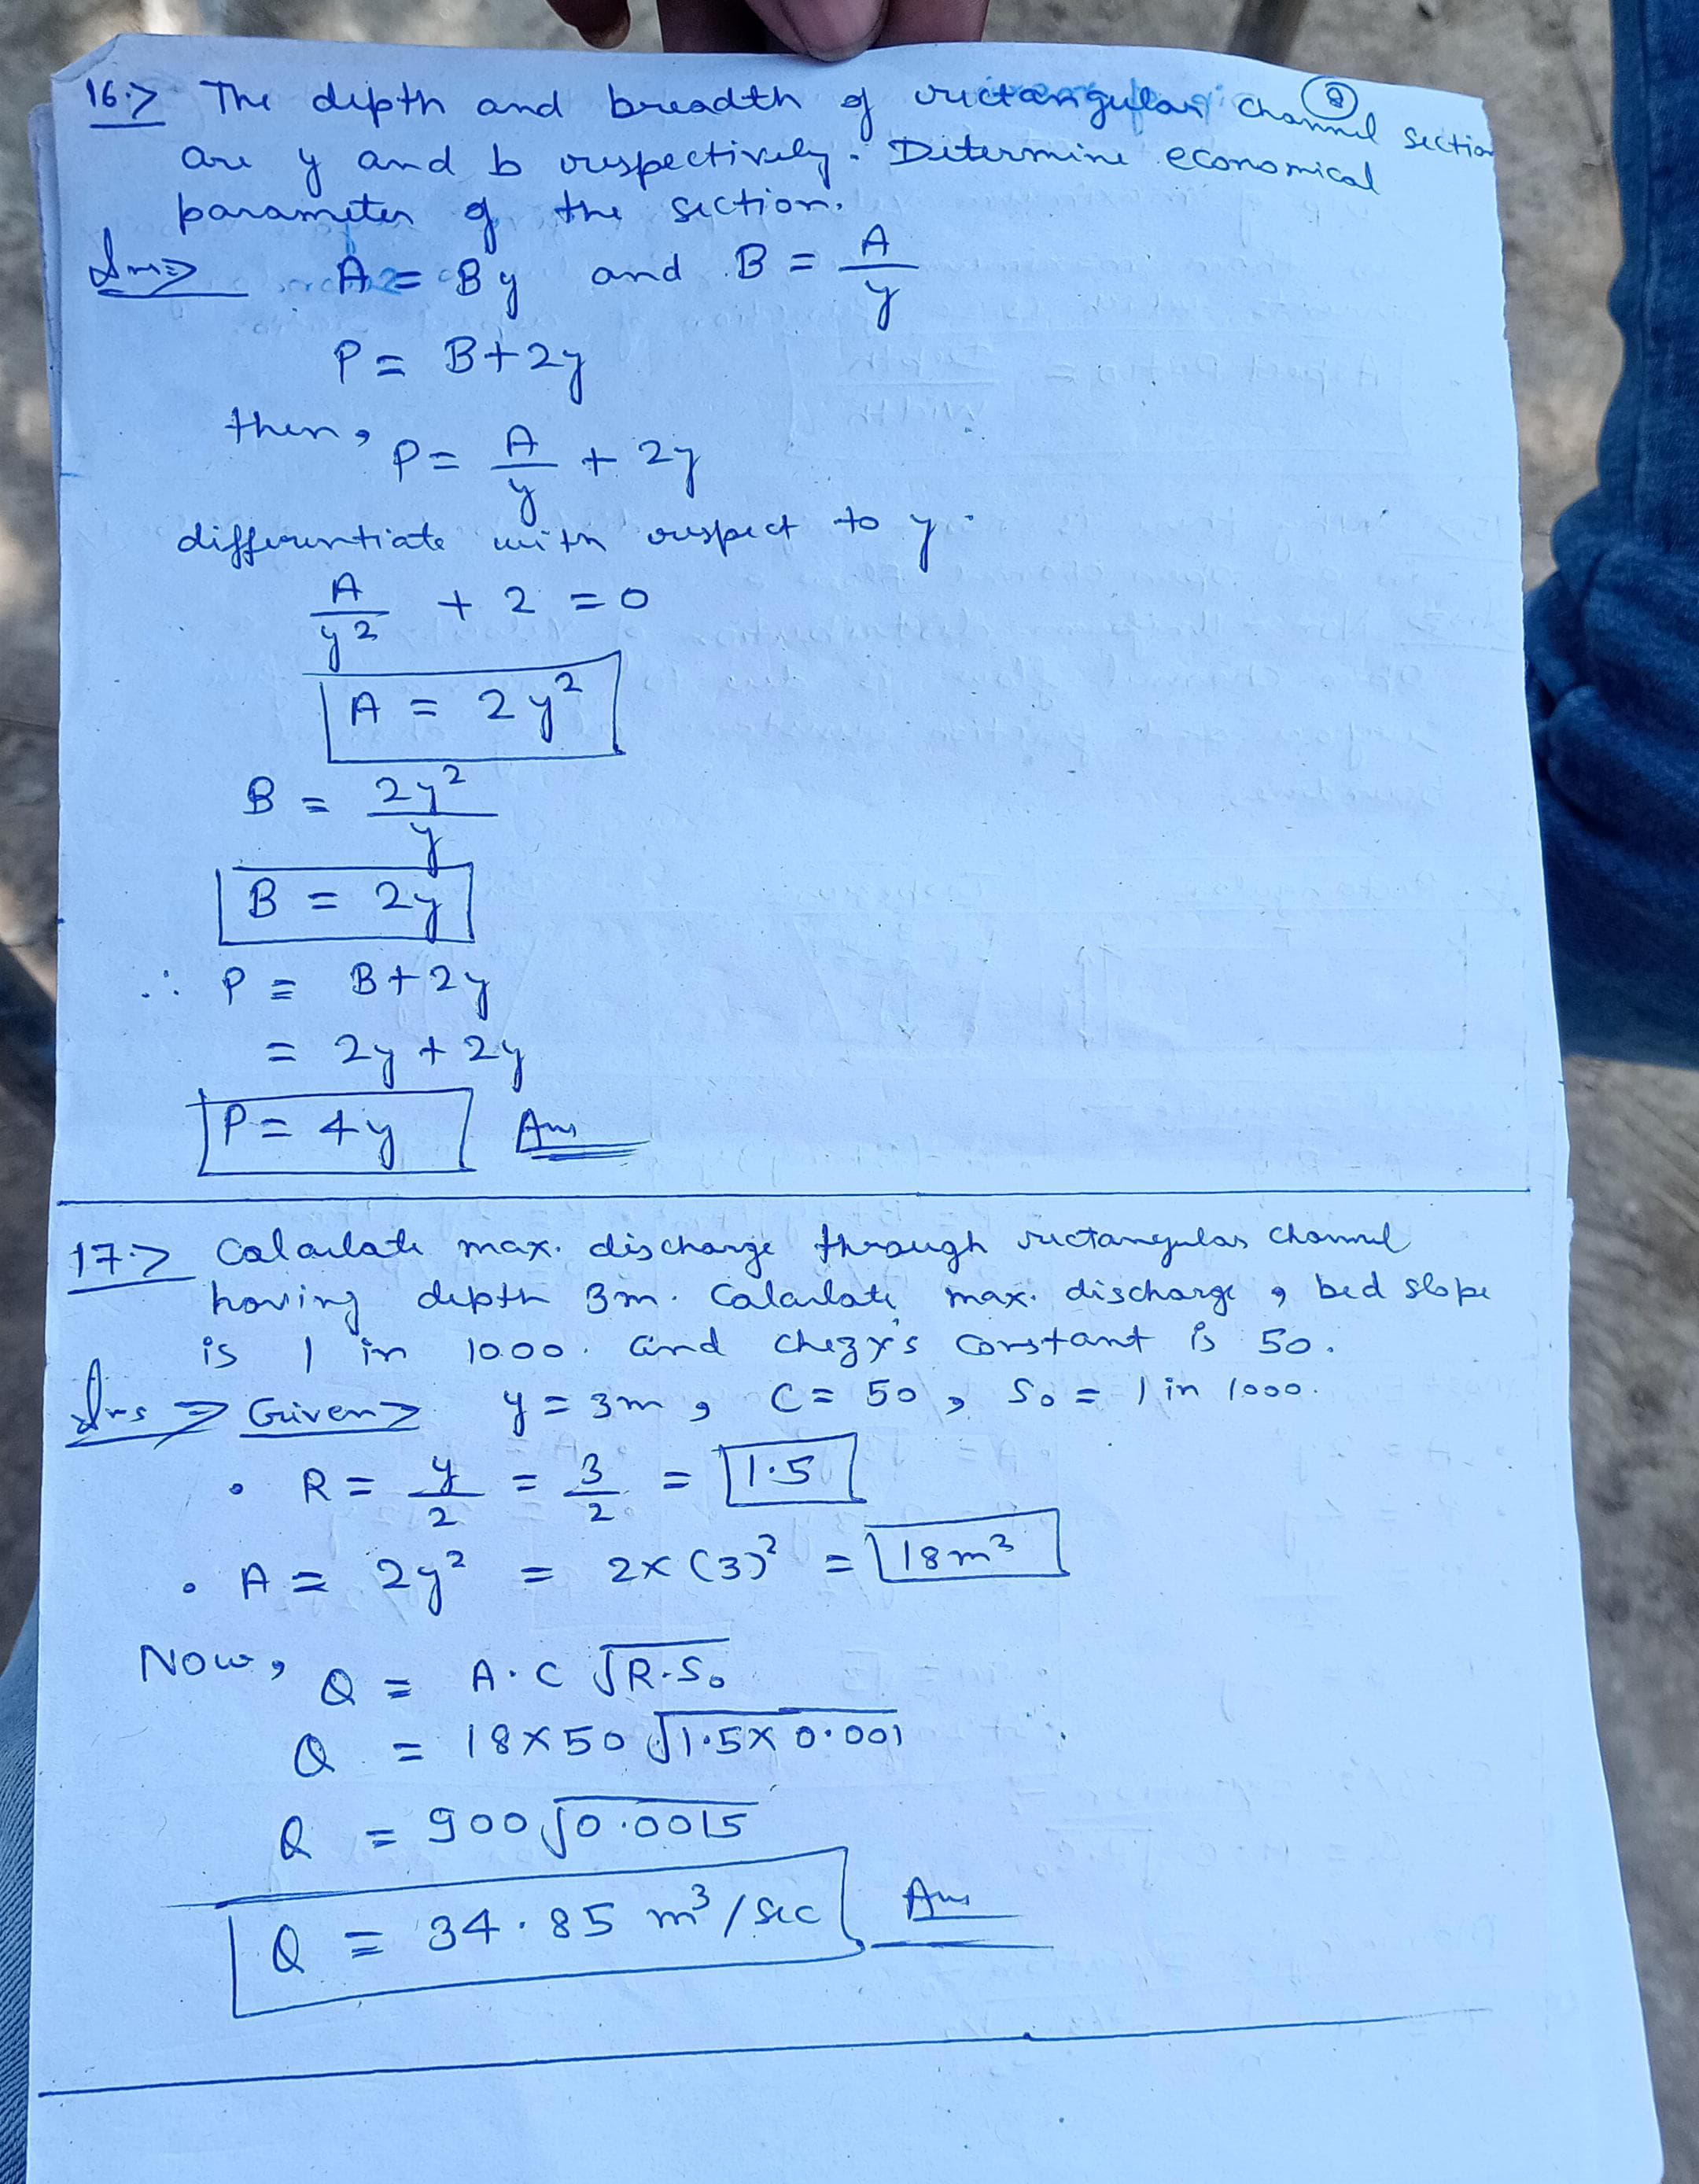 8
16.> The depth and breadth of rectangular channel section
are y and b respectively. Determine economical
parameter of the section.
Ans=> A = By and B = A/y
P = B+2y
then, P = A/y + 2y
differentiate with respect to y.
A/y² + 2 = 0
A = 2y²
B = 2y²/y
B = 2y
∴ P = B+2y
= 2y + 2y
P = 4y Ans
17.> Calculate max. discharge through rectangular channel
having depth 3m. Calculate max. discharge, bed slope
is 1 in 1000. and chezy's constant is 50.
Ans => Given> y = 3m, C = 50, S₀ = 1 in 1000.
• R = y/2 = 3/2 = 1.5
• A = 2y² = 2×(3)² = 18m²
Now, Q = A.C √R.S₀
Q = 18×50 √1.5×0.001
Q = 900 √0.0015
Q = 34.85 m³/sec Ans